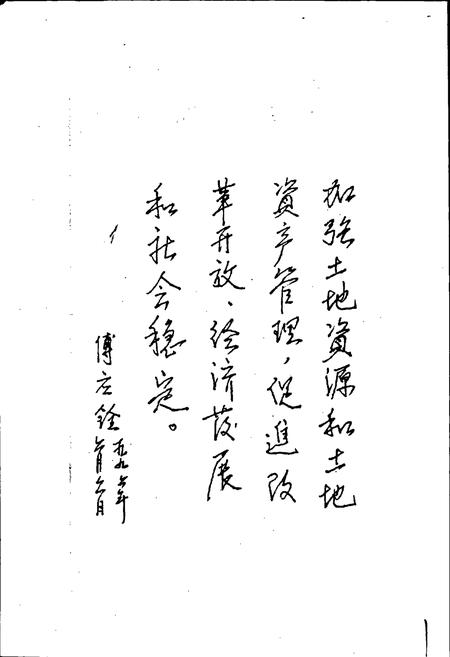 加強土地資源和土地
資产管理，促進改
革开放、经济发展
和社会稳定。
傅立铨
九九六年
六月六日